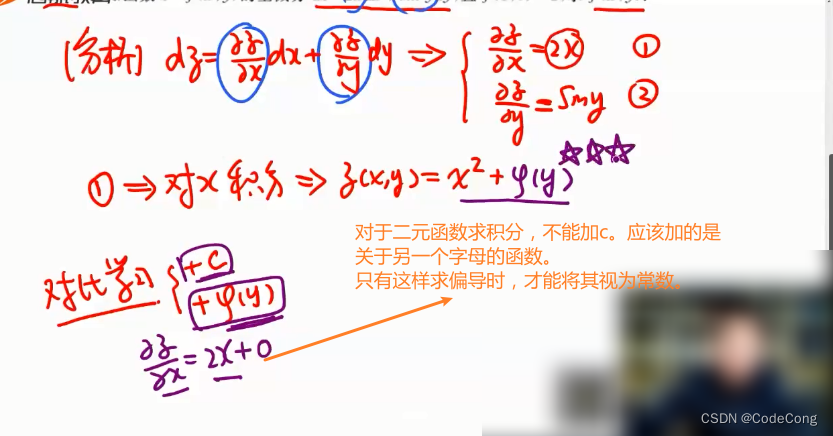 [分析] dz=∂z/∂x dx+∂z/∂y dy ⇒ { ∂z/∂x=2x ①
∂z/∂y=siny ②
①⇒对x积分⇒z(x,y)=x²+φ(y) ☆☆☆
对于二元函数求积分，不能加c。应该加的是
关于另一个字母的函数。
只有这样求偏导时，才能将其视为常数。
对比学习 { +C
+φ(y)
∂z/∂x=2x+0
CSDN @CodeCong